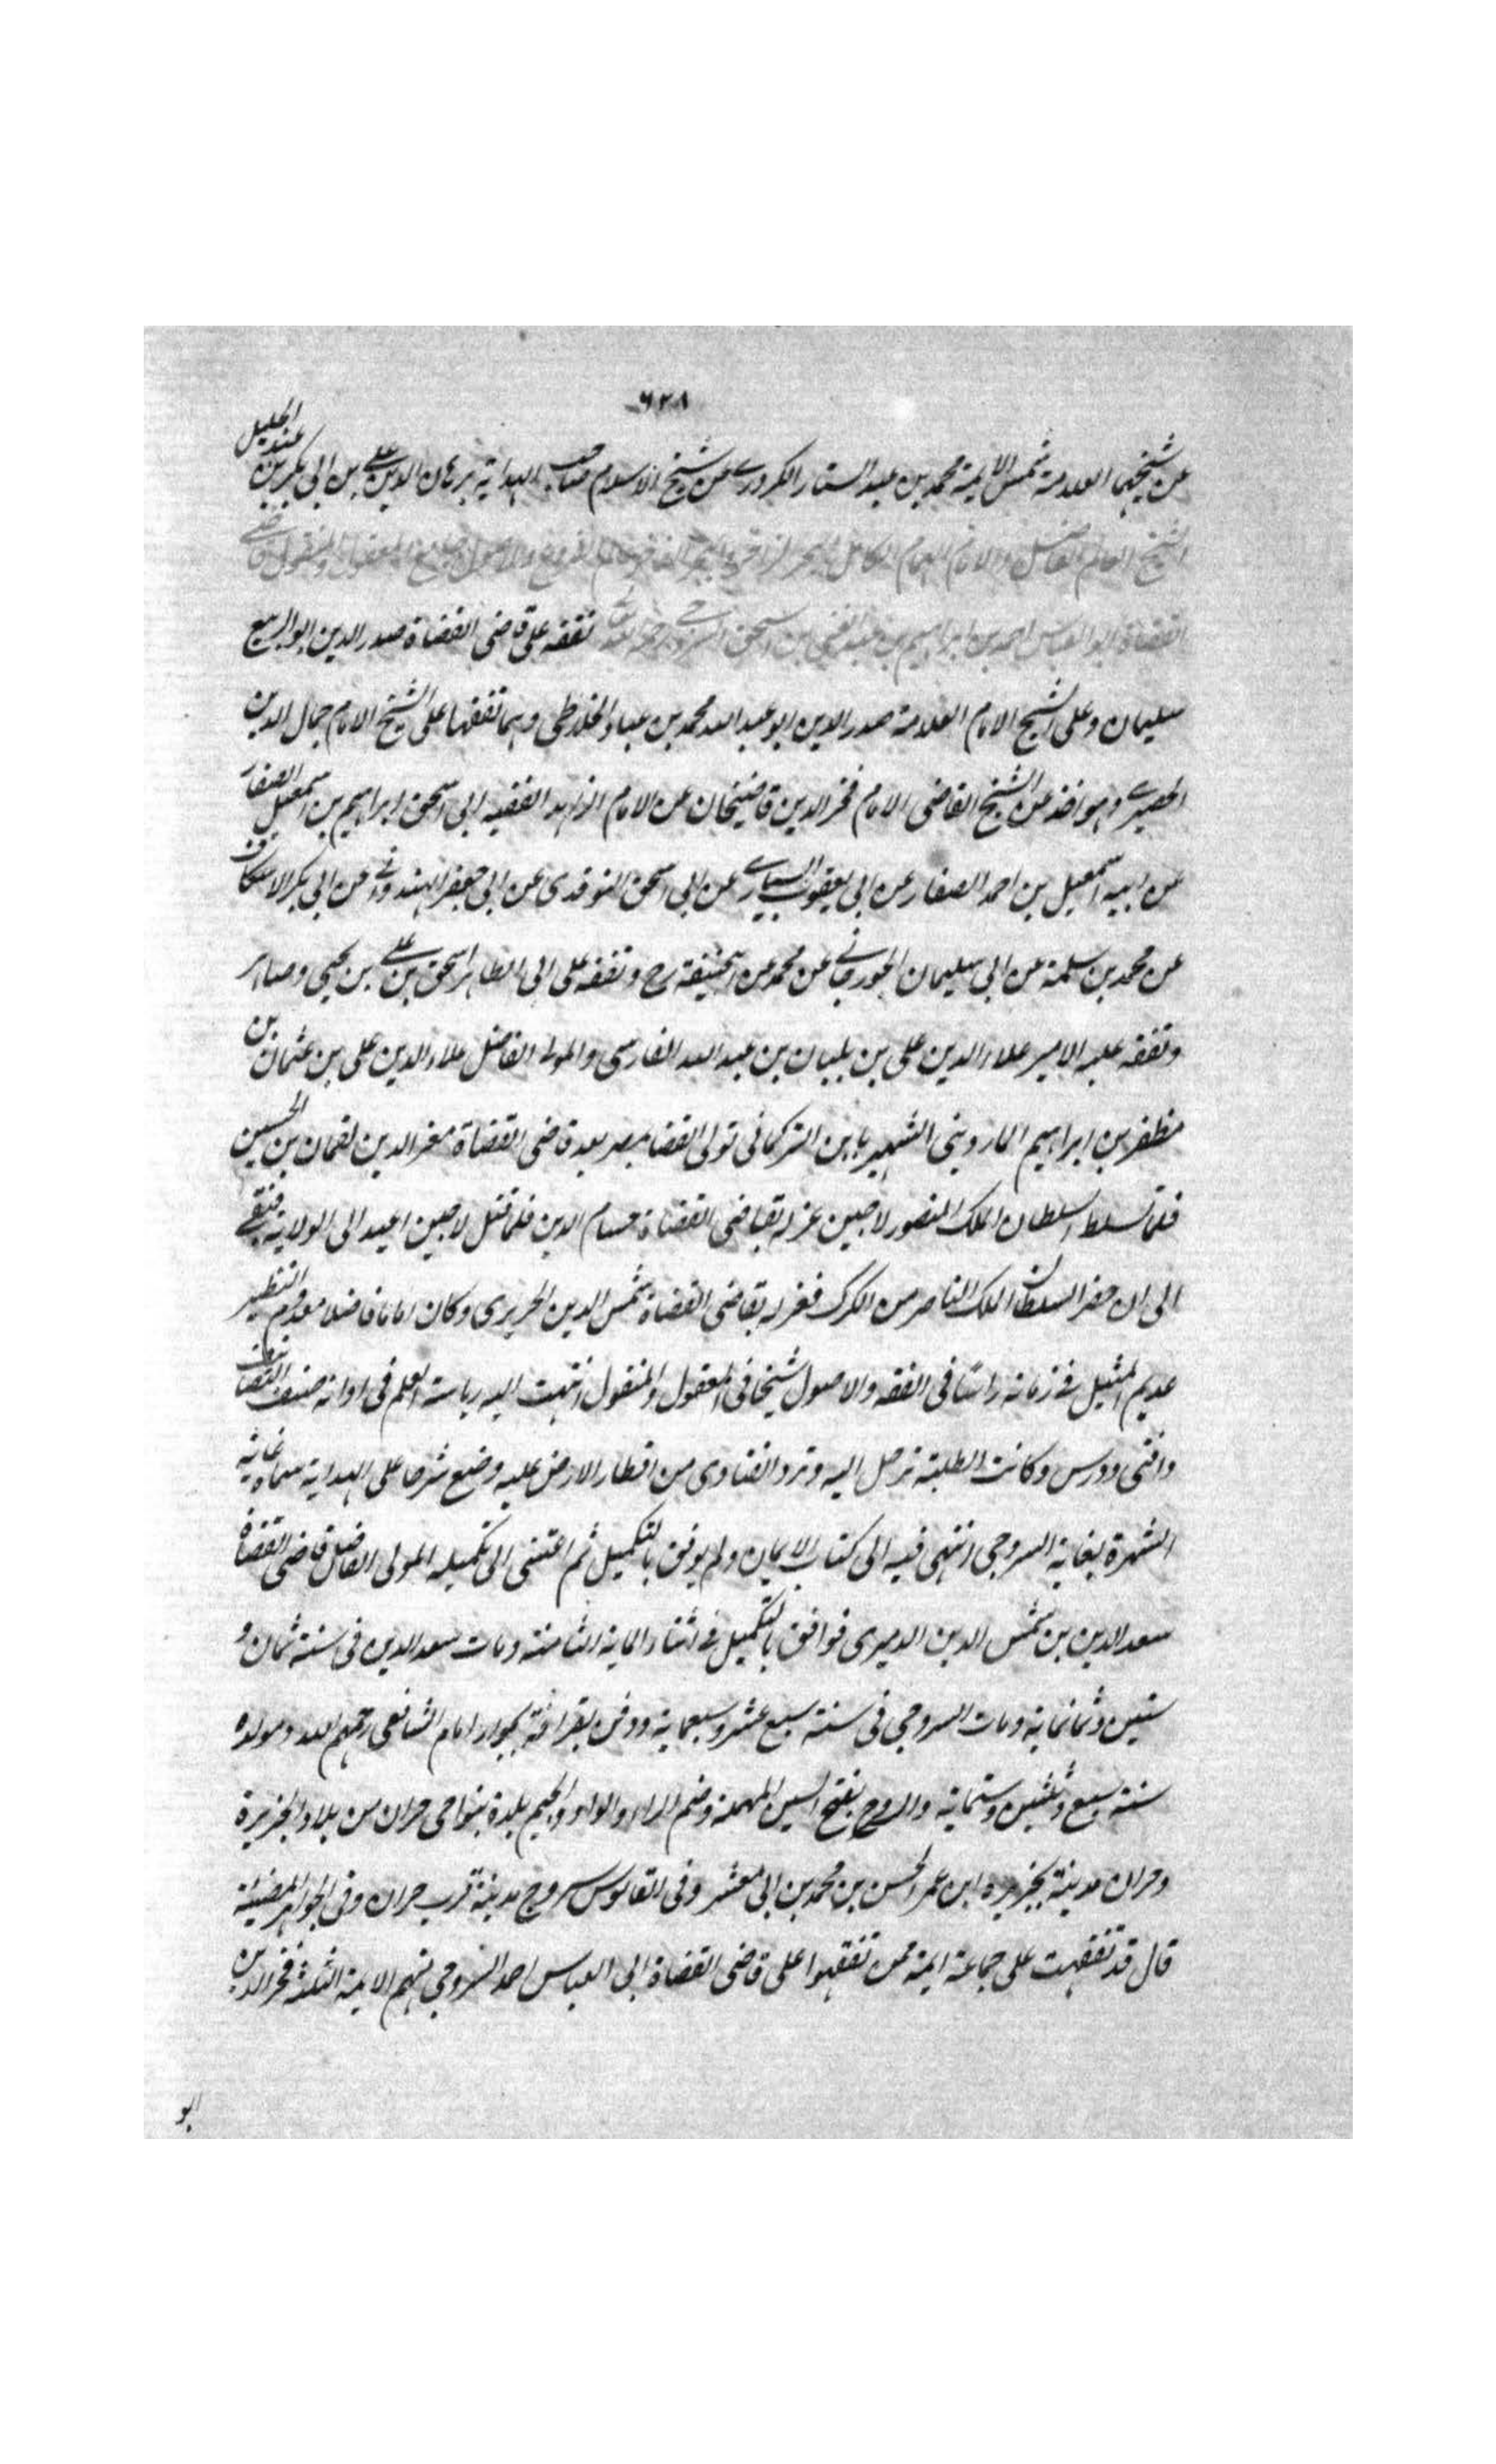 ٦٢٨
عن شيخهما العلامة شمس الايمة محمد بن عبد الستار الكردرى عن شيخ الاسلام صاحب الهداية برهان الدين على بن ابى بكر بن عبد الجليل
الشيخ العالم الفاضل والامام الهمام الكامل البحر الزاخر والبحر الفاخر عالم الفروع والاصول جامع المعقول والمنقول قاضى
القضاة ابو العباس احمد بن ابراهيم بن عبد الغنى بن اسحق السروجى رحمه الله تعالى تفقه على قاضى القضاة صدر الدين ابو الربيع
سليمان وعلى الشيخ الامام العلامة صدر الدين ابو عبد الله محمد بن عباد الخلاطى وهما تفقها على الشيخ الامام جمال الدين
الحصيرى وهو اخذ عن الشيخ القاضى الامام فخر الدين قاضيخان عن الامام الزاهد الفقيه ابى اسحق ابراهيم بن اسمعيل الصفار
عن ابيه اسمعيل بن احمد الصفار عن ابى يعقوب السيارى عن ابى اسحق النوقدى عن ابى جعفر الهندوانى عن ابى بكر الاسكاف
عن محمد بن سلمة عن ابى سليمان الجوزجانى عن محمد عن ابيحنيفة رح وتفقه على ابى الطاهر اسحق بن على بن يحيى وصاهر
وتفقه عليه الامير علاء الدين على بن بلبان بن عبد الله الفارسى والمولى الفاضل علاء الدين على بن عثمان بن
مظفر بن ابراهيم الماردينى الشهير بابن التركمانى تولى القضا بمصر بعد قاضى القضاة معز الدين نعمان بن الحسين
فلما تسلط السلطان الملك المنصور لاجين عزله بقاضى القضاة حسام الدين فلما قتل لاجين اعيد الى الولاية فبقى
الى ان حضر السلطان الملك الناصر من الكرك فعزله بقاضى القضاة شمس الدين الحريرى وكان اماما فاضلا معدوم النظير
عديم المثيل فى زمانه راسا فى الفقه والاصول شيخا فى المعقول والمنقول انتهت اليه رياسة العلم فى اوانه صنف التصانيف
وافتى ودرس وكانت الطلبة ترحل اليه وترد الفتاوى من اقطار الارض عليه وضع شرحا على الهداية سماه غاية
الشهرة بغاية السروجى انتهى فيه الى كتاب الايمان ولم يوفق بالتكميل ثم اعتنى الى تكميله المولى الفاضل قاضى القضاة
سعد الدين بن شمس الدين الديرى فوافق بالتكميل فى اثناء الماية الثامنة ومات سعد الدين فى سنة ثمان و
ستين وثمانماية ومات السروجى فى سنة سبع عشر وسبعماية ودفن بقرافة بجوار امام الشافعى رحمهم الله ومولده
سنة سبع وثلثين وستماية والسروج بفتح السين المهملة وضم الراء والواو والجيم بلدة بنواحى حران من بلاد الجزيرة
وحران مدينة بجزيره ابن عمر الحسن بن محمد بن ابى معشر وفى القاموس سروج مدينة قرب حران وفى الجواهر المضيئة
قال قد تفقهت على جماعة ايمة ممن تفقهوا على قاضى القضاة ابى العباس احمد السروجى منهم الايمة الثلثة فخر الدين
ابو